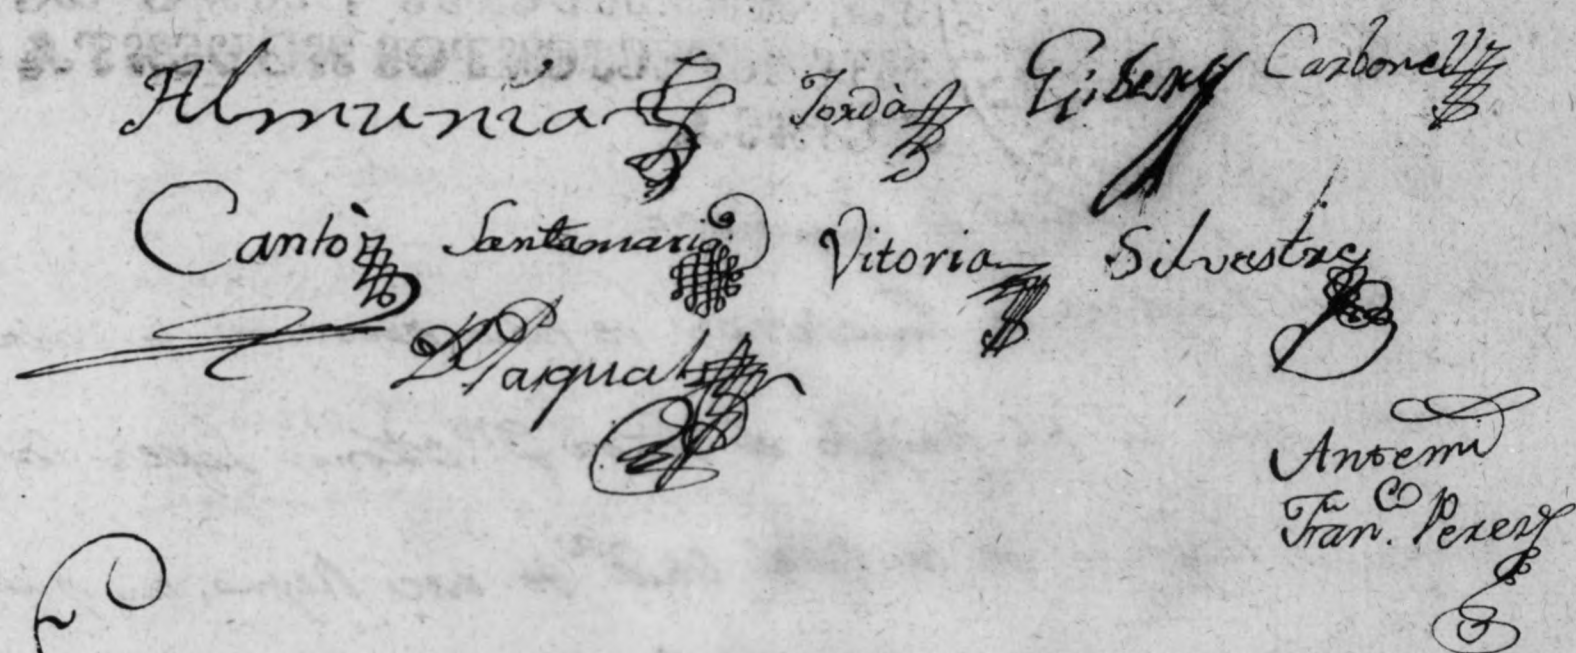 Almunia Jordà Gisbert Carbonell
Cantò Santamaria Vitoria Silvestre
Pasqual
Antemi
Fran.co Perez